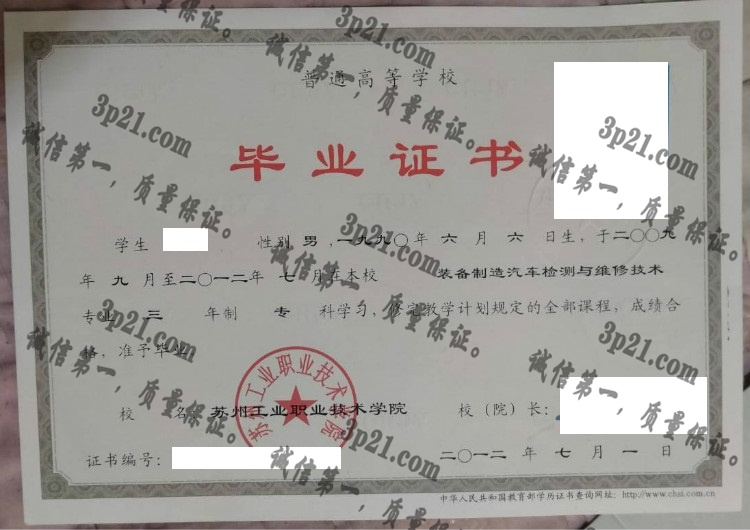 普通高等学校
毕业证书
学生 性别 男 ,一九九〇年 六 月 六 日生，于二〇〇九
年 九 月至二〇一二年 七 月在本校 装备制造汽车检测与维修技术
专业 三 年制 专 科学习，修完教学计划规定的全部课程，成绩合
格，准予毕业。
校 名 苏州工业职业技术学院 校（院）长：
苏州工业职业技术学院
证书编号： 二〇一二 年 七 月 一 日
中华人民共和国教育部学历证书查询网址：http://www.chsi.com.cn
3p21.com
诚信第一，质量保证。
3p21.com
诚信第一，质量保证。
3p21.com
诚信第一，质量保证。
3p21.com
诚信第一，质量保证。
3p21.com
诚信第一，质量保证。
3p21.com
诚信第一，质量保证。
3p21.com
诚信第一，质量保证。